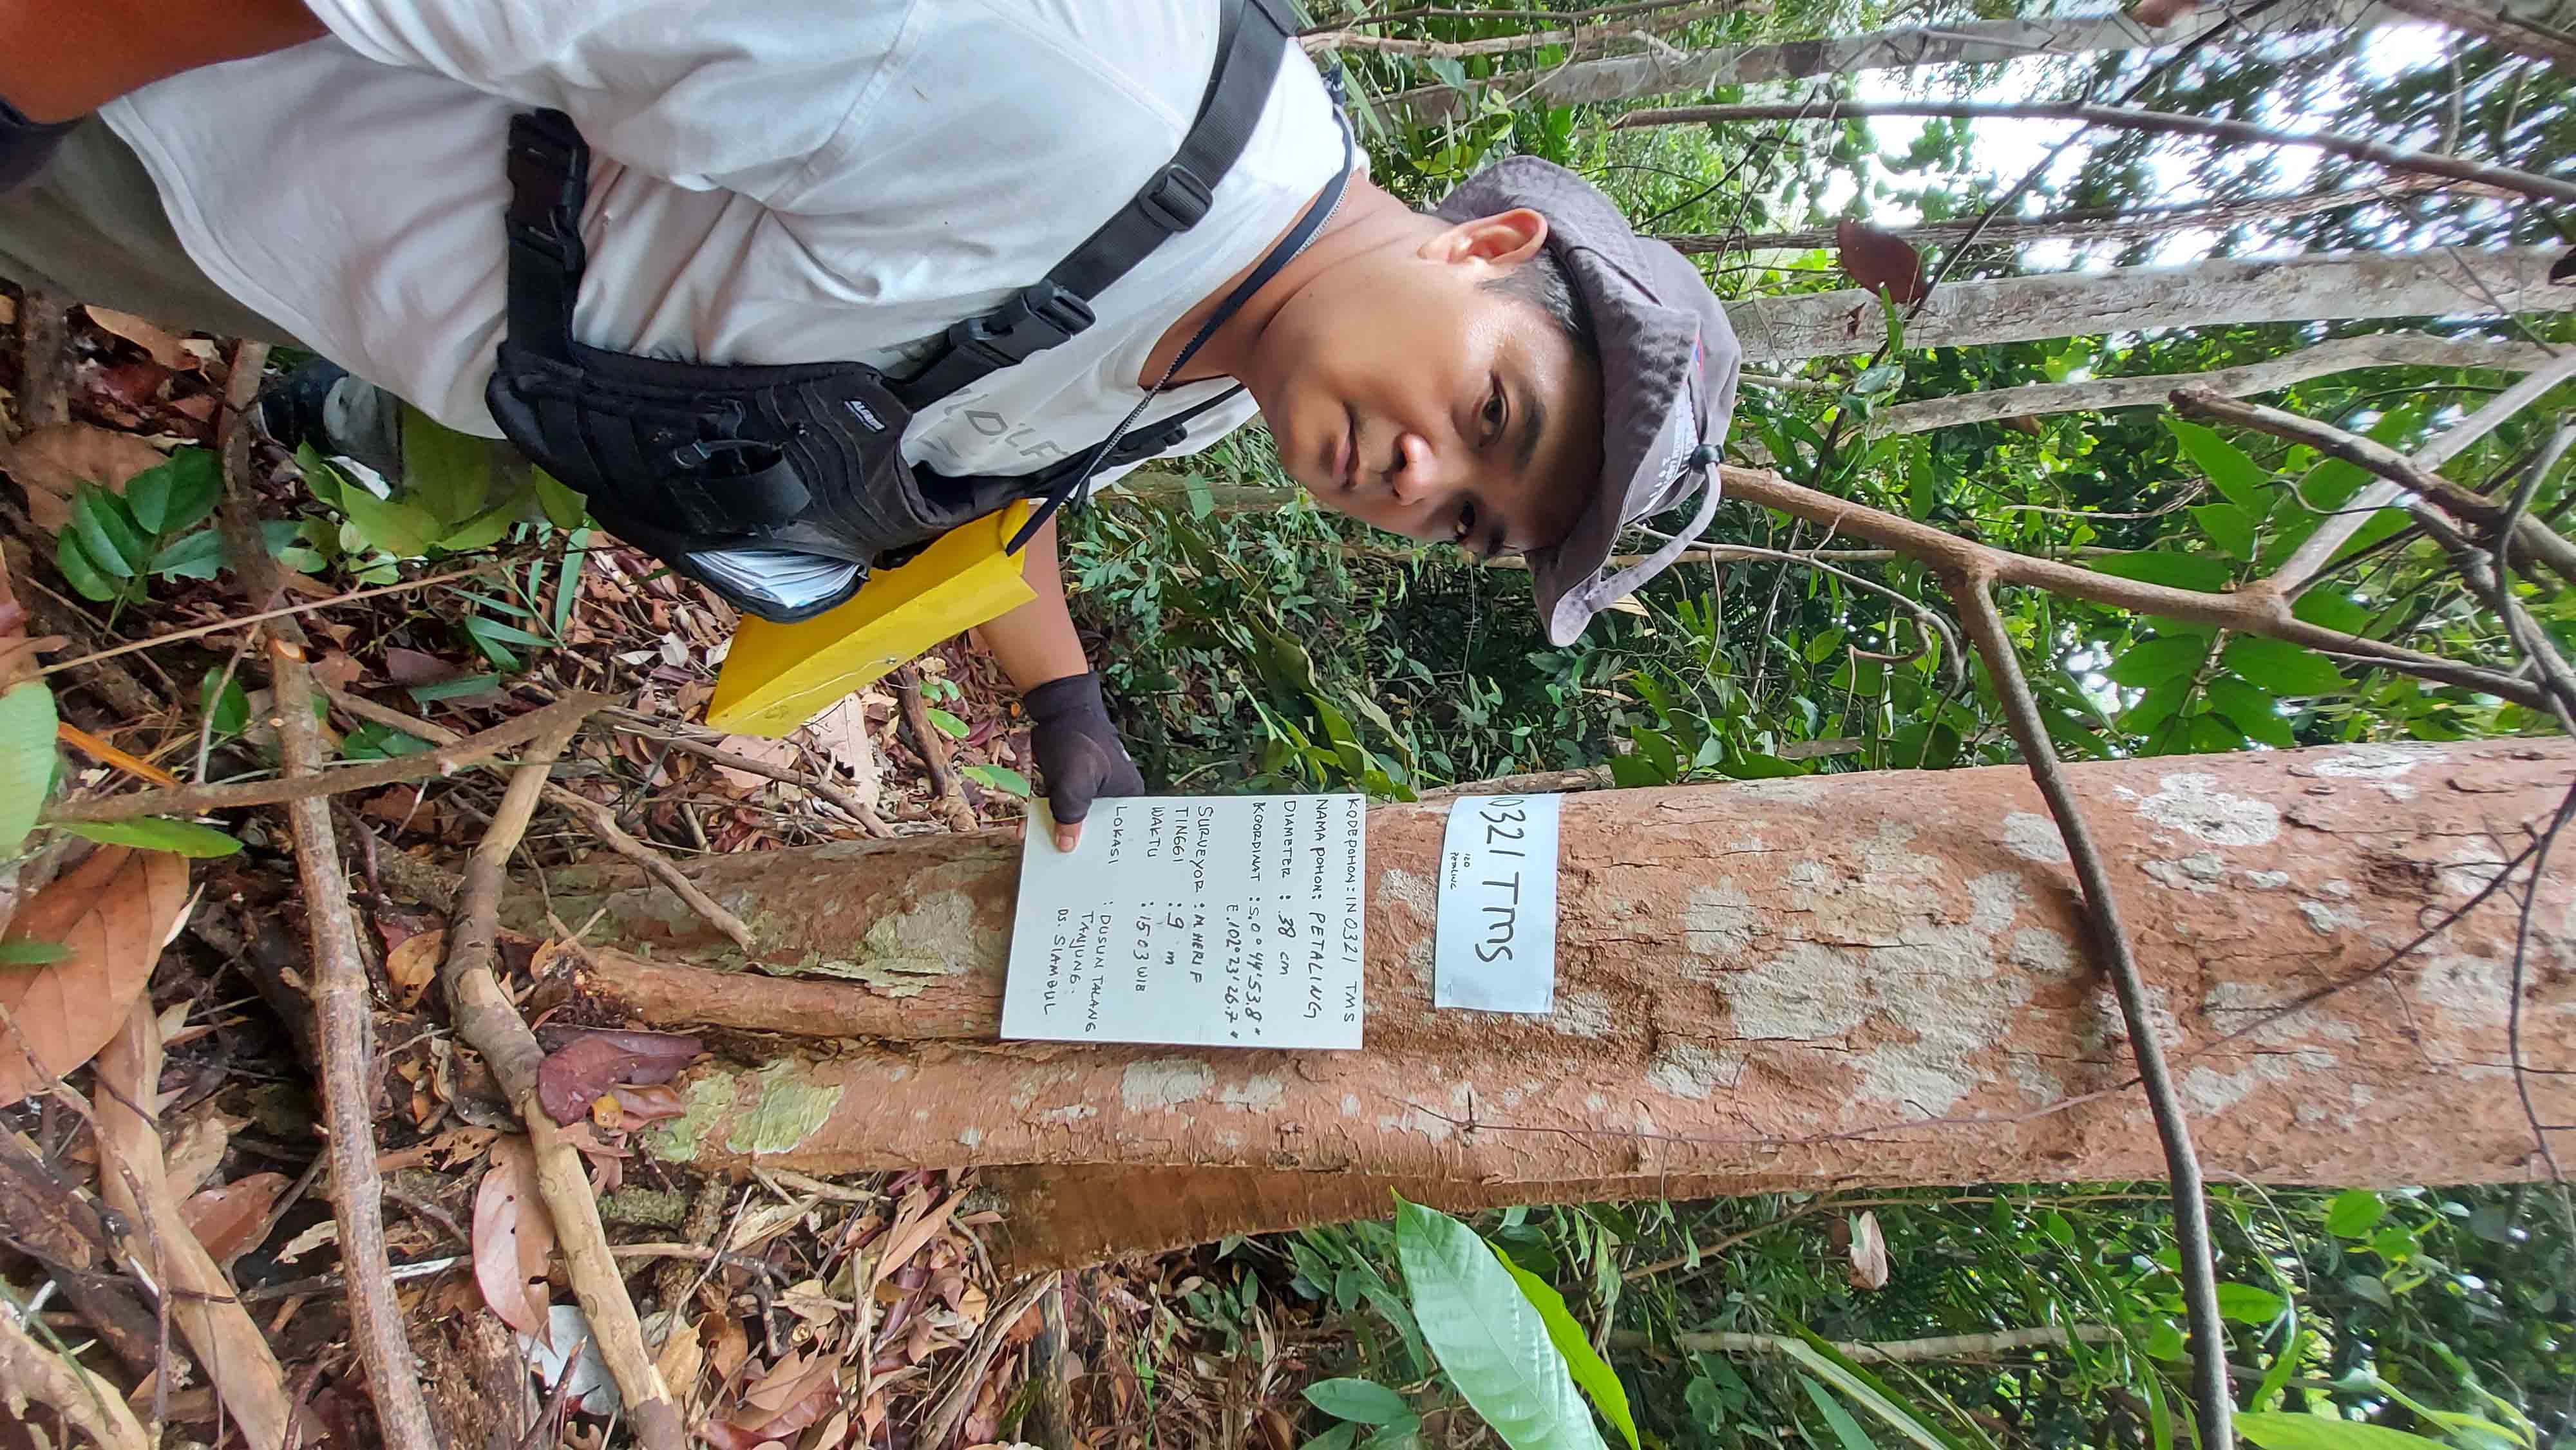 2011
10321 TMS
120
PETALING
KODEPOHON : IN 0321 TMS
NAMA POHON : PETALING
DIAMETER : 38 cm
KOORDINAT : S.0° 44' 53.8"
E.102° 23' 26.7"
SURVEYOR : M HERI F
TINGGI : 9 m
WAKTU : 15 03 WIB
LOKASI : DUSUN TALANG
TANJUNG.
DS. SIAMBUL